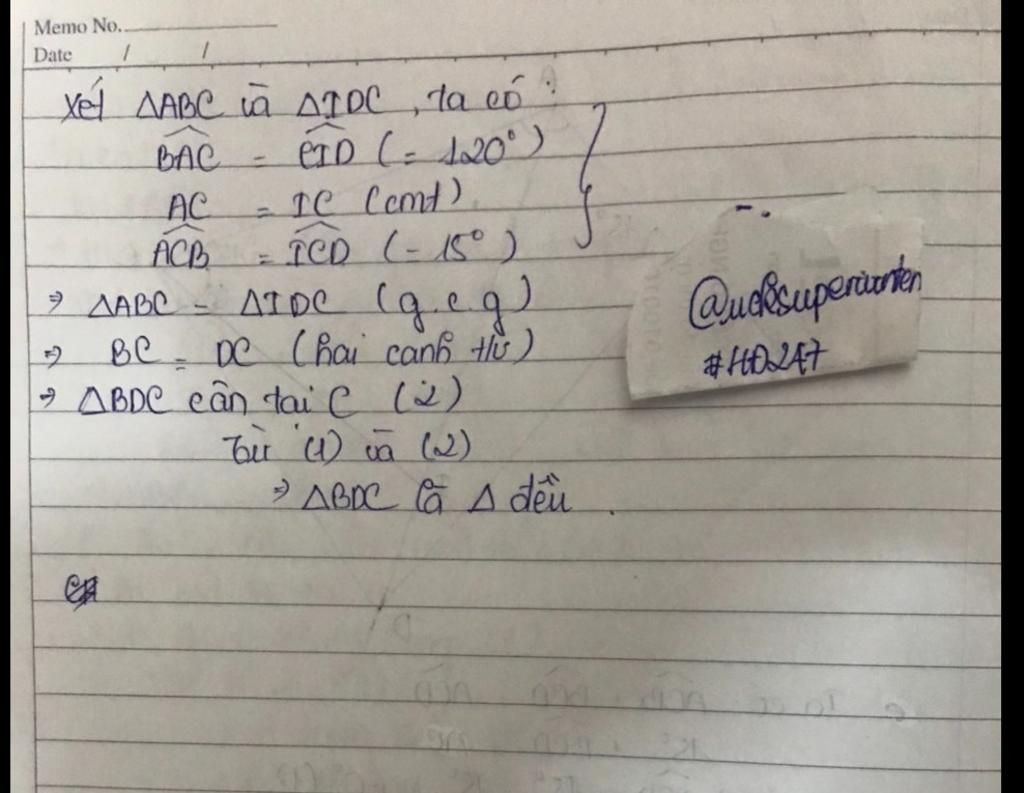 Memo No.
Date / /
Xét ΔABC và ΔIDC, ta có:
BAC = CID (= 120°)
AC = IC (cmt)
ACB = ICD (= 15°)
⇒ ΔABC = ΔIDC (g.c.g)
⇒ BC = DC (hai cạnh tư)
⇒ ΔBDC cân tại C (2)
Từ (1) và (2)
⇒ ΔBDC là Δ đều.
#HD247